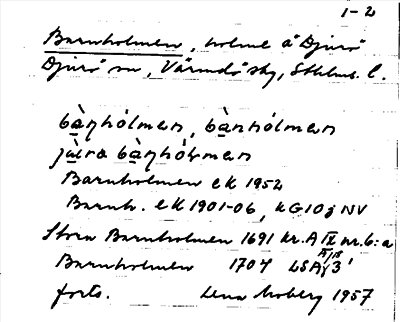 1-2
Barnholmen, holme å Djurö
Djurö sn, Värmdö skg, Sthlms l.
bàṇhólmen, bànhólmen
Barnholmen ek 1952
Barnh. ek 1901-06, KG 10j NV
Stora Barnholmen 1691 kr. A IX nr. 6:a
Barnholmen 1704 LSA
forts. Lena Moberg 1957